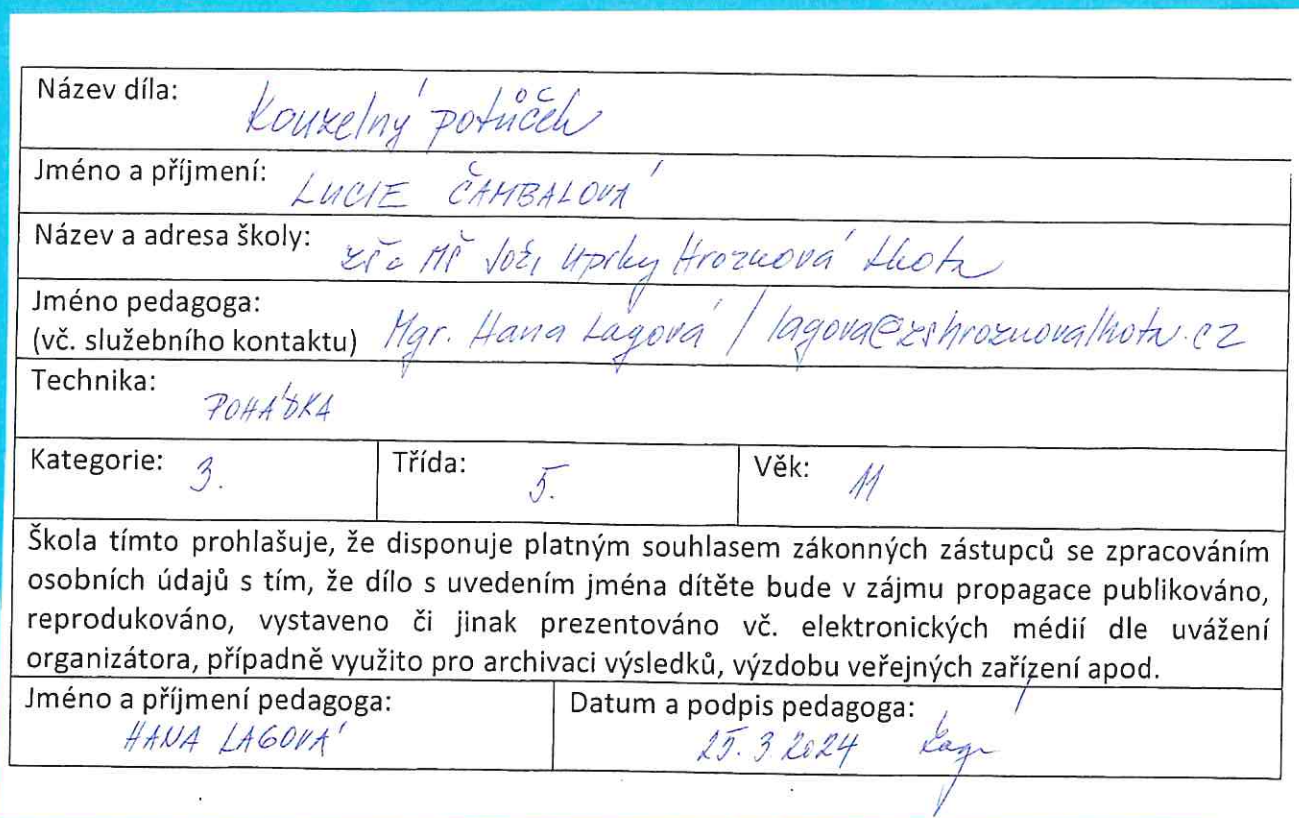 Název díla: Kouzelný potůček
Jméno a příjmení: LUCIE ČAMBALOVÁ
Název a adresa školy: ZŠ a MŠ Joži Uprky Hroznová Lhota
Jméno pedagoga:
(vč. služebního kontaktu) Mgr. Hana Lagová / lagova@zshroznovalhota.cz
Technika: POHÁDKA
Kategorie: 3. Třída: 5. Věk: 11
Škola tímto prohlašuje, že disponuje platným souhlasem zákonných zástupců se zpracováním
osobních údajů s tím, že dílo s uvedením jména dítěte bude v zájmu propagace publikováno,
reprodukováno, vystaveno či jinak prezentováno vč. elektronických médií dle uvážení
organizátora, případně využito pro archivaci výsledků, výzdobu veřejných zařízení apod.
Jméno a příjmení pedagoga: Datum a podpis pedagoga:
HANA LAGOVÁ 25.3.2024